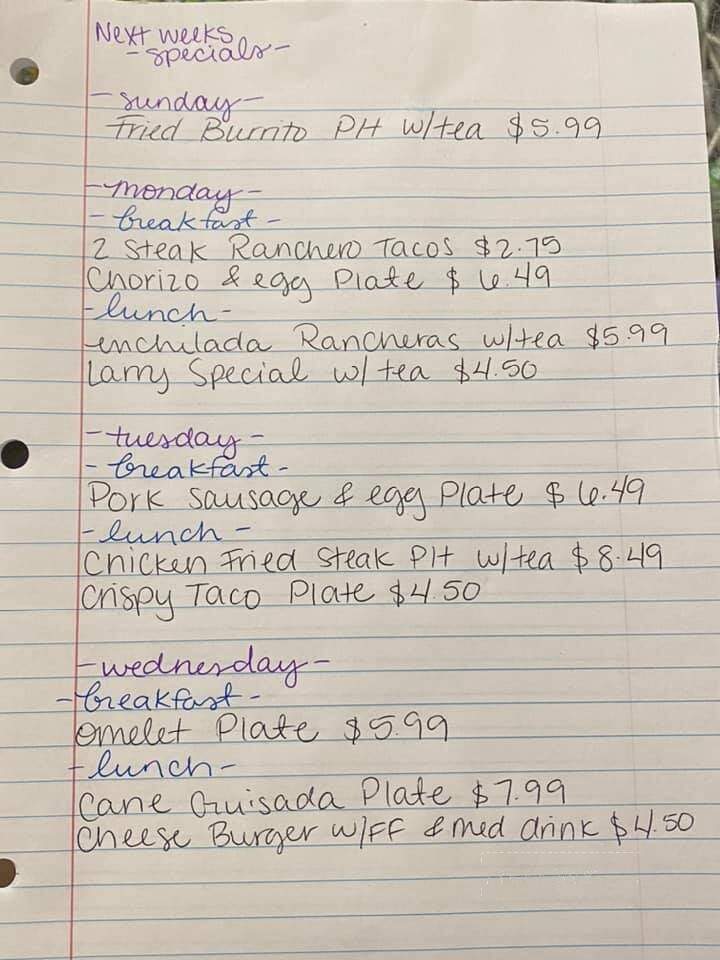 Next weeks
- specials -
- sunday -
Fried Burrito Plt w/tea $5.99
- monday -
- breakfast -
2 Steak Ranchero Tacos $2.75
Chorizo & egg Plate $6.49
- lunch -
enchilada Rancheras w/tea $5.99
Larry Special w/ tea $4.50
- tuesday -
- breakfast -
Pork Sausage & egg Plate $6.49
- lunch -
Chicken Fried Steak Plt w/tea $8.49
Crispy Taco Plate $4.50
- wednesday -
- breakfast -
omelet Plate $5.99
- lunch -
Cane Guisada Plate $7.99
Cheese Burger w/FF & med drink $4.50